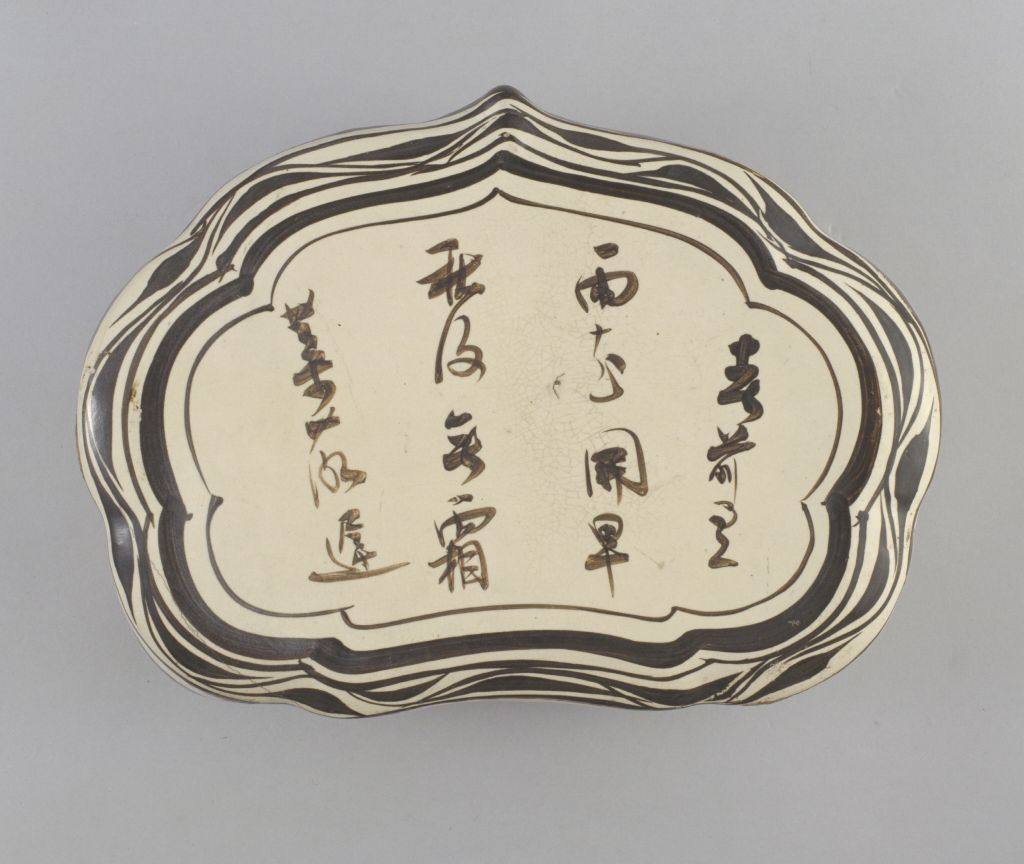 春前有
雨花開早
秋後無霜
葉落遲